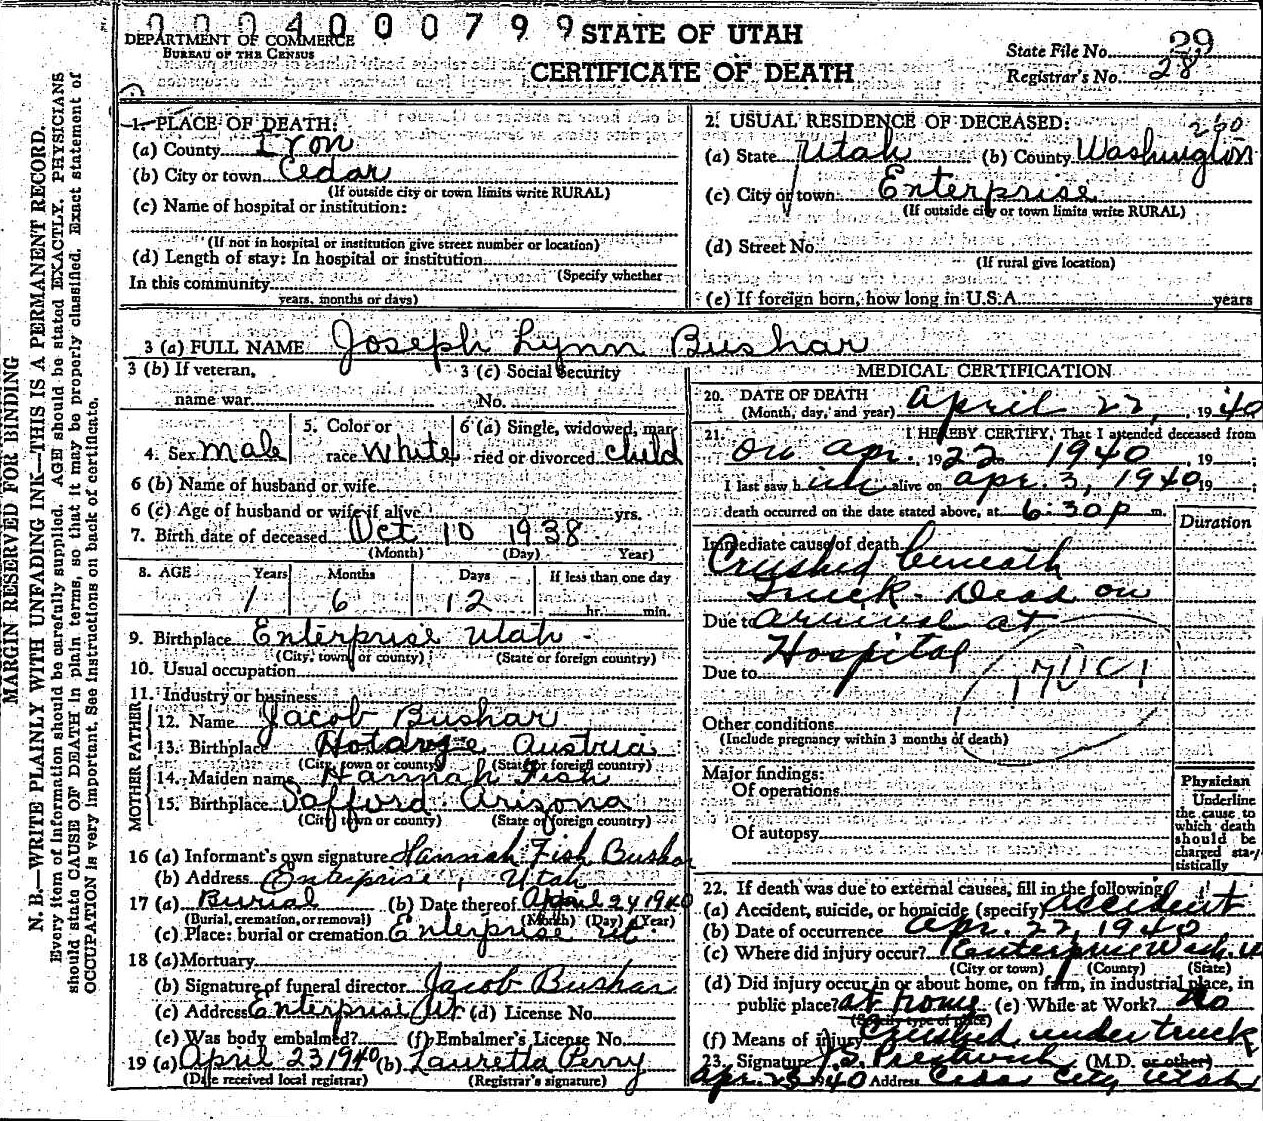 0004000799
STATE OF UTAH
DEPARTMENT OF COMMERCE
BUREAU OF THE CENSUS
CERTIFICATE OF DEATH
State File No. 29
Registrar's No. 28
MARGIN RESERVED FOR BINDING
N. B.—WRITE PLAINLY WITH UNFADING INK—THIS IS A PERMANENT RECORD.
Every item of information should be carefully supplied. AGE should be stated EXACTLY. PHYSICIANS
should state CAUSE OF DEATH in plain terms, so that it may be properly classified. Exact statement of
OCCUPATION is very important. See instructions on back of certificate.
1. PLACE OF DEATH:
(a) County Iron
(b) City or town Cedar
(If outside city or town limits write RURAL)
(c) Name of hospital or institution:
(If not in hospital or institution give street number or location)
(d) Length of stay: In hospital or institution
(Specify whether
In this community
years, months or days)
2. USUAL RESIDENCE OF DECEASED:
260
(a) State Utah (b) County Washington
(c) City or town Enterprise
(If outside city or town limits write RURAL)
(d) Street No.
(If rural give location)
(e) If foreign born, how long in U.S.A. years
3 (a) FULL NAME Joseph Lynn Bushar
3 (b) If veteran, 3 (c) Social Security
name war No.
4. Sex male 5. Color or race White 6 (a) Single, widowed, married or divorced child
6 (b) Name of husband or wife
6 (c) Age of husband or wife if alive yrs.
7. Birth date of deceased Oct 10 1938
(Month) (Day) Year)
8. AGE Years Months Days If less than one day
1 6 12 hr. min.
9. Birthplace Enterprise Utah
(City, town, or county) (State or foreign country)
10. Usual occupation
11. Industry or business
FATHER
12. Name Jacob Bushar
13. Birthplace Austria
(City, town or county) (State or foreign country)
MOTHER
14. Maiden name Hannah Fish
15. Birthplace Safford Arizona
(City town or county) (State or foreign country)
16 (a) Informant's own signature Hannah Fish Bushar
(b) Address Enterprise, Utah
17 (a) Burial (b) Date thereof April 24 1940
(Burial, cremation, or removal) (Month) (Day) (Year)
(c) Place: burial or cremation Enterprise Ut.
18 (a) Mortuary
(b) Signature of funeral director Jacob Bushar
(c) Address Enterprise Ut. (d) License No.
(e) Was body embalmed? (f) Embalmer's License No.
19 (a) April 23 1940 (b) Lauretta Perry
(Date received local registrar) (Registrar's signature)
MEDICAL CERTIFICATION
20. DATE OF DEATH
(Month, day, and year) April 22, 1940
21. I HEREBY CERTIFY, That I attended deceased from
on Apr. 1922 1940, 19 ;
I last saw h im alive on Apr. 3, 1940, 19 ;
death occurred on the date stated above, at 6:30 P m.
Duration
Immediate cause of death
Crushed beneath
truck. Dead on
Due to arrival at
Hospital
Due to
Other conditions
(Include pregnancy within 3 months of death)
Major findings:
Of operations
Of autopsy
Physician
Underline
the cause to
which death
should be
charged sta-
tistically
22. If death was due to external causes, fill in the following:
(a) Accident, suicide, or homicide (specify) accident
(b) Date of occurrence Apr. 22, 1940
(c) Where did injury occur? Enterprise Wash. U
(City or town) (County) (State)
(d) Did injury occur in or about home, on farm, in industrial place, in
public place? at home (e) While at Work? No
(Specify type of place)
(f) Means of injury Crushed under truck
23. Signature J.S. Prestwich (M.D. or other)
Apr. 23 1940 Address Cedar City, Utah